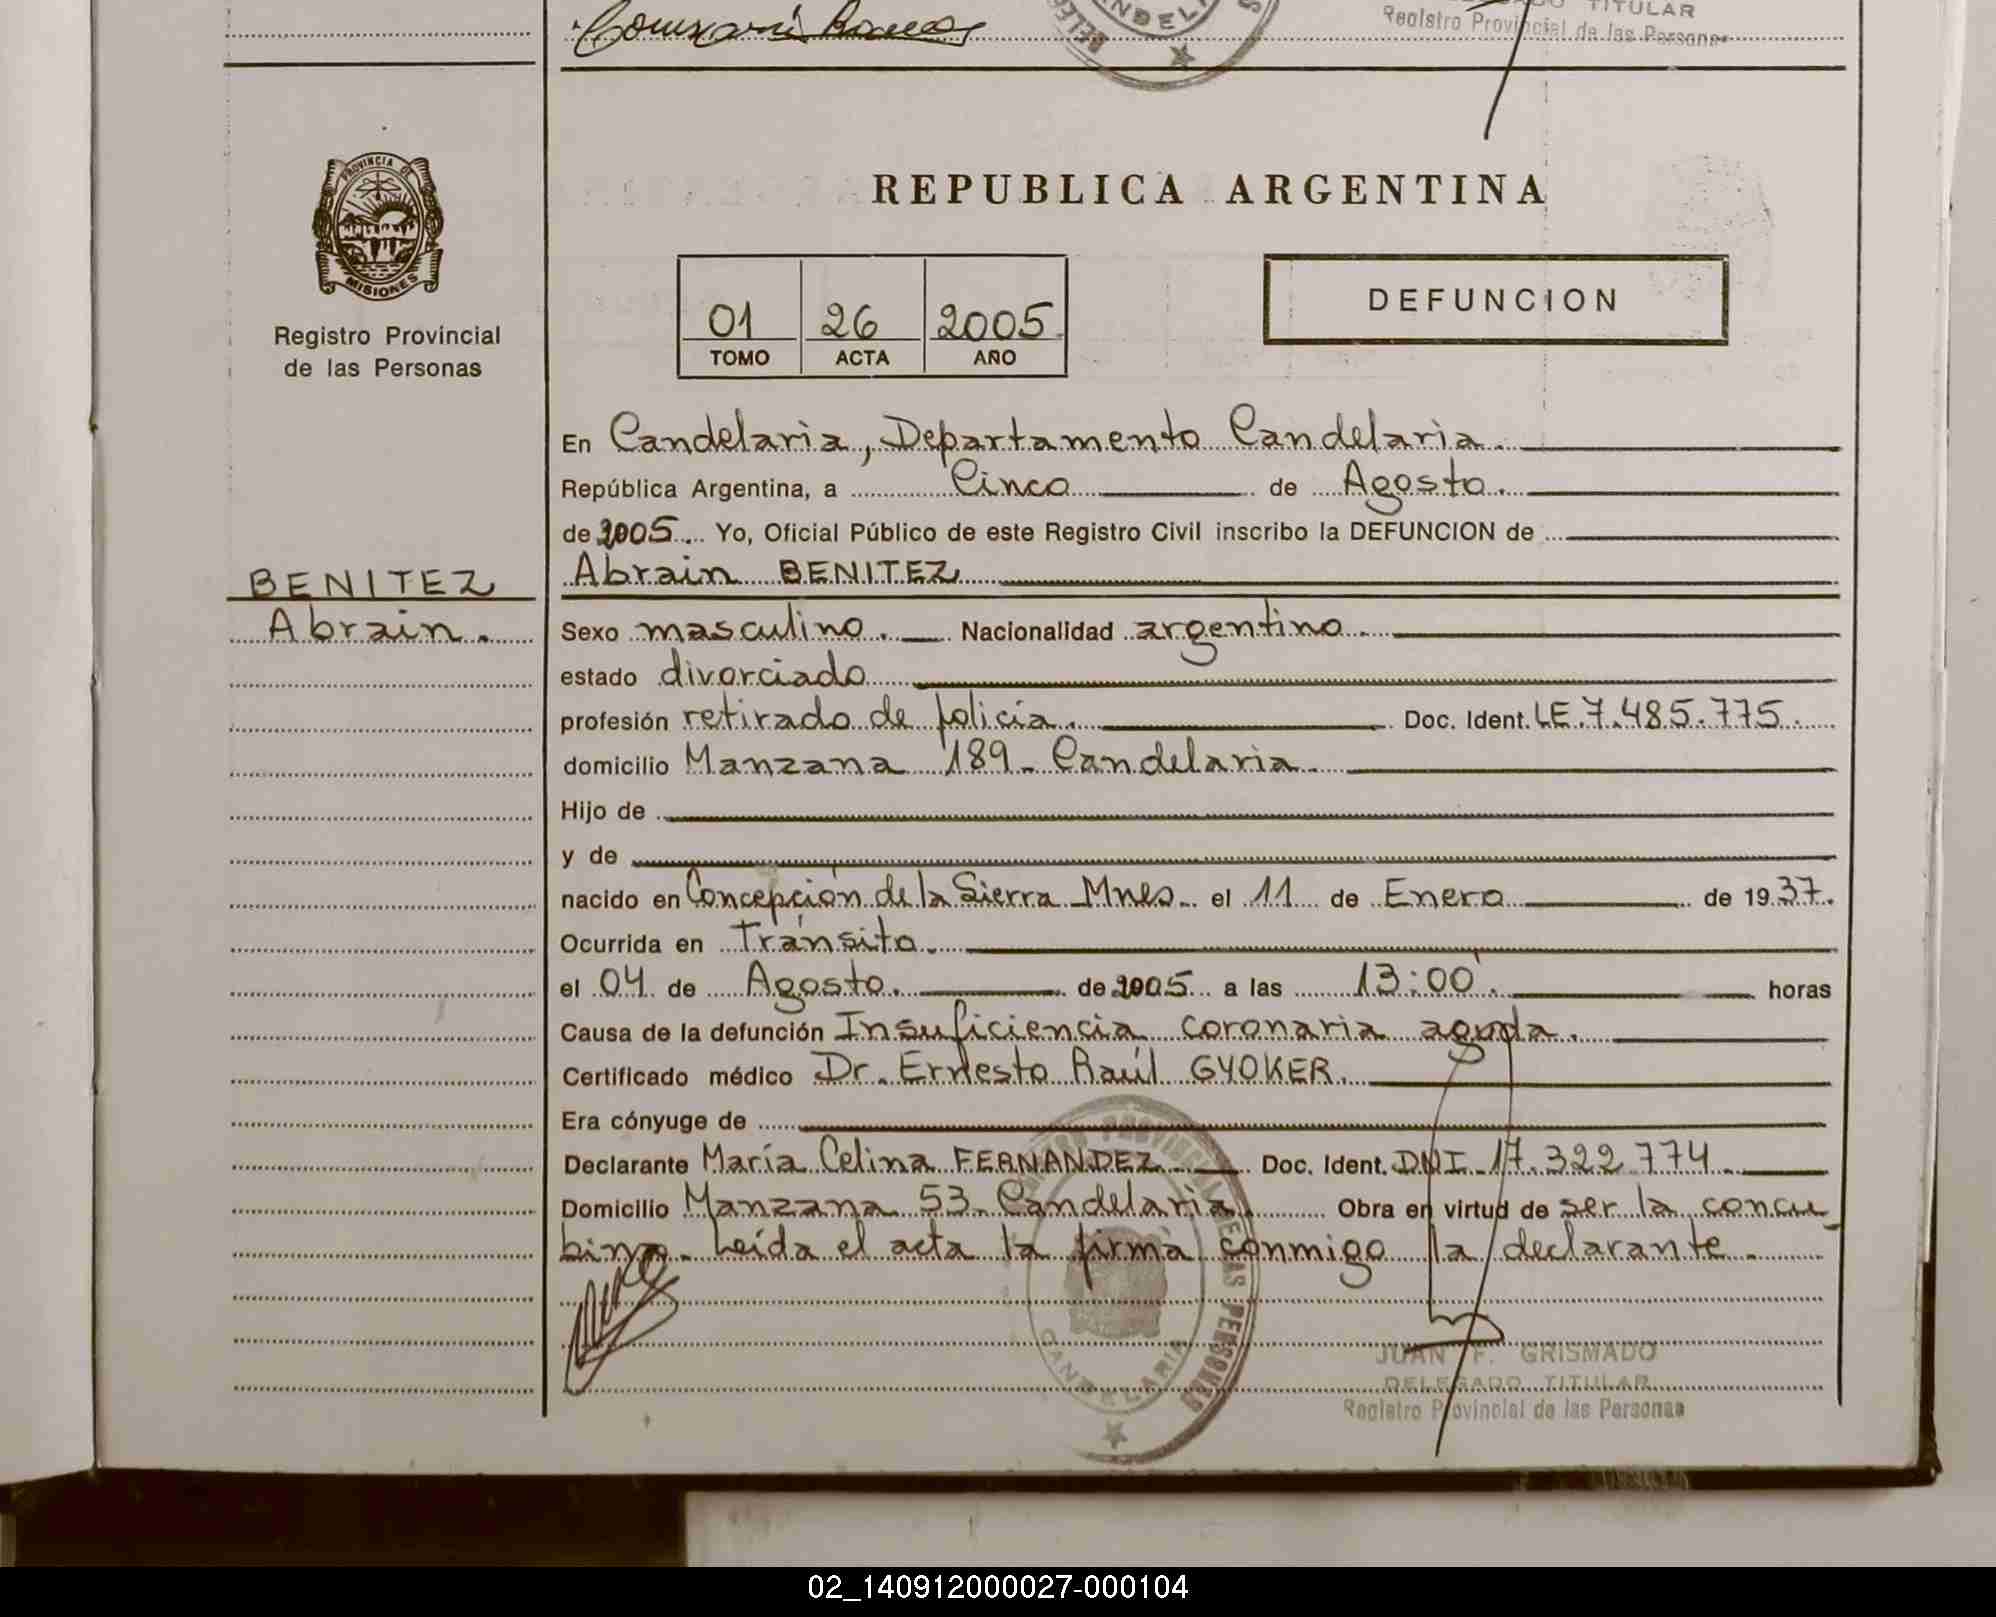 TITULAR
Registro Provincial de las Personas
PROVINCIA DE
MISIONES
Registro Provincial
de las Personas
REPUBLICA ARGENTINA
01 26 2005
TOMO ACTA AÑO
DEFUNCION
En Candelaria, Departamento Candelaria.
República Argentina, a Cinco de Agosto.
de 2005. Yo, Oficial Público de este Registro Civil inscribo la DEFUNCION de
BENITEZ
Abrain.
Abrain BENITEZ
Sexo masculino. Nacionalidad argentino.
estado divorciado
profesión retirado de policía. Doc. Ident. LE.7.485.775.
domicilio Manzana 189- Candelaria.
Hijo de
y de
nacido en Concepción de la Sierra Mnes. el 11 de Enero de 1937.
Ocurrida en Tránsito.
el 04 de Agosto. de 2005 a las 13:00. horas
Causa de la defunción Insuficiencia coronaria aguda.
Certificado médico Dr. Ernesto Raúl GYOKER.
Era cónyuge de
Declarante María Celina FERNANDEZ Doc. Ident. DNI 17.322.774
Domicilio Manzana 53- Candelaria. Obra en virtud de ser la concu-
bina. Leída el acta la firma conmigo la declarante.
CANDELARIA
JUAN F. GRISMADO
DELEGADO TITULAR
Registro Provincial de las Personas
02_140912000027-000104